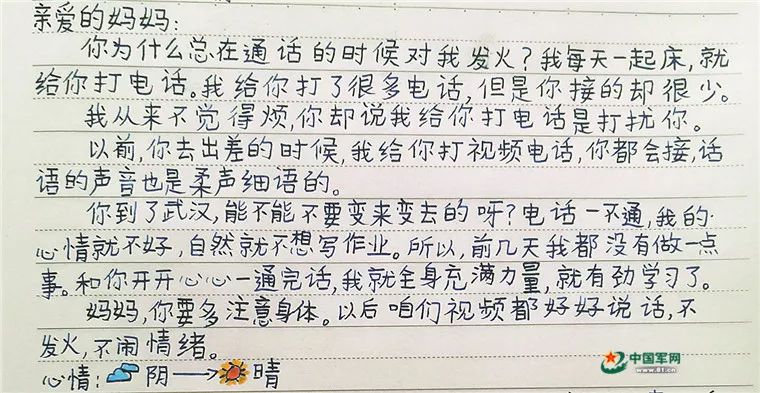 亲爱的妈妈:
你为什么总在通话的时候对我发火?我每天一起床,就
给你打电话。我给你打了很多电话,但是你接的却很少。
我从来不觉得烦,你却说我给你打电话是打扰你。
以前,你去出差的时候,我给你打视频电话,你都会接,话
语的声音也是柔声细语的。
你到了武汉,能不能不要变来变去的呀?电话一不通,我的
心情就不好,自然就不想写作业。所以,前几天我都没有做一点
事。和你开开心心一通完话,我就全身充满力量,就有劲学习了。
妈妈,你要多注意身体。以后咱们视频都好好说话,不
发火,不闹情绪。
心情:阴→晴
中国军网
www.81.cn